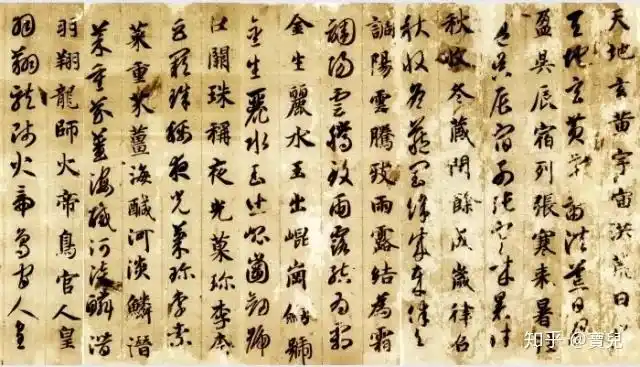 天地玄黄宇宙洪荒日
天地玄黄宇宙洪荒日月
盈昃辰宿列張寒来暑
盈昃辰宿列張寒来暑往
秋收冬藏閏餘成歲律吕
秋收冬藏閏餘成歲律吕
調陽雲騰致雨露結為霜
調陽雲騰致雨露結為霜
金生麗水玉出崐崗劍號
金生麗水玉出崐崗劍號
巨闕珠稱夜光菓珍李柰
巨闕珠稱夜光菓珍李柰
菜重芥薑海鹹河淡鱗潜
菜重芥薑海鹹河淡鱗潜
羽翔龍師火帝鳥官人皇
羽翔龍師火帝鳥官人皇
知乎 @寶兒